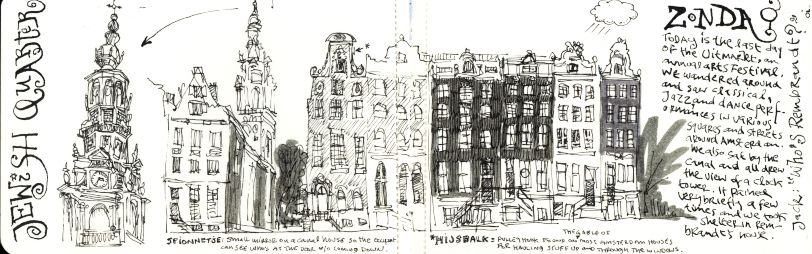 JEWISH QUARTER
SPIONNETJE: Small mirror on a canal house so the occupant
can see who's at the door w/o coming down.
THE GABLE OF
*HIJSBALK: PULLEY HOOK FOUND ON MOST AMSTERDAM HOUSES
FOR HAULING STUFF UP AND THROUGH THE WINDOWS.
ZONDAG
TODAY is the last day
OF the UITMARKT, an
annual arts Festival.
We wandered around
and saw classical,
Jazz and dance perf-
ormances in various
squares and streets
around Amsterdam.
We also sat by the
canal and all drew
the view of a clock
tower. It rained
very briefly a few
times and we took
shelter in Rem-
brandt's house.
Jack: "Who is Rembrandt?"